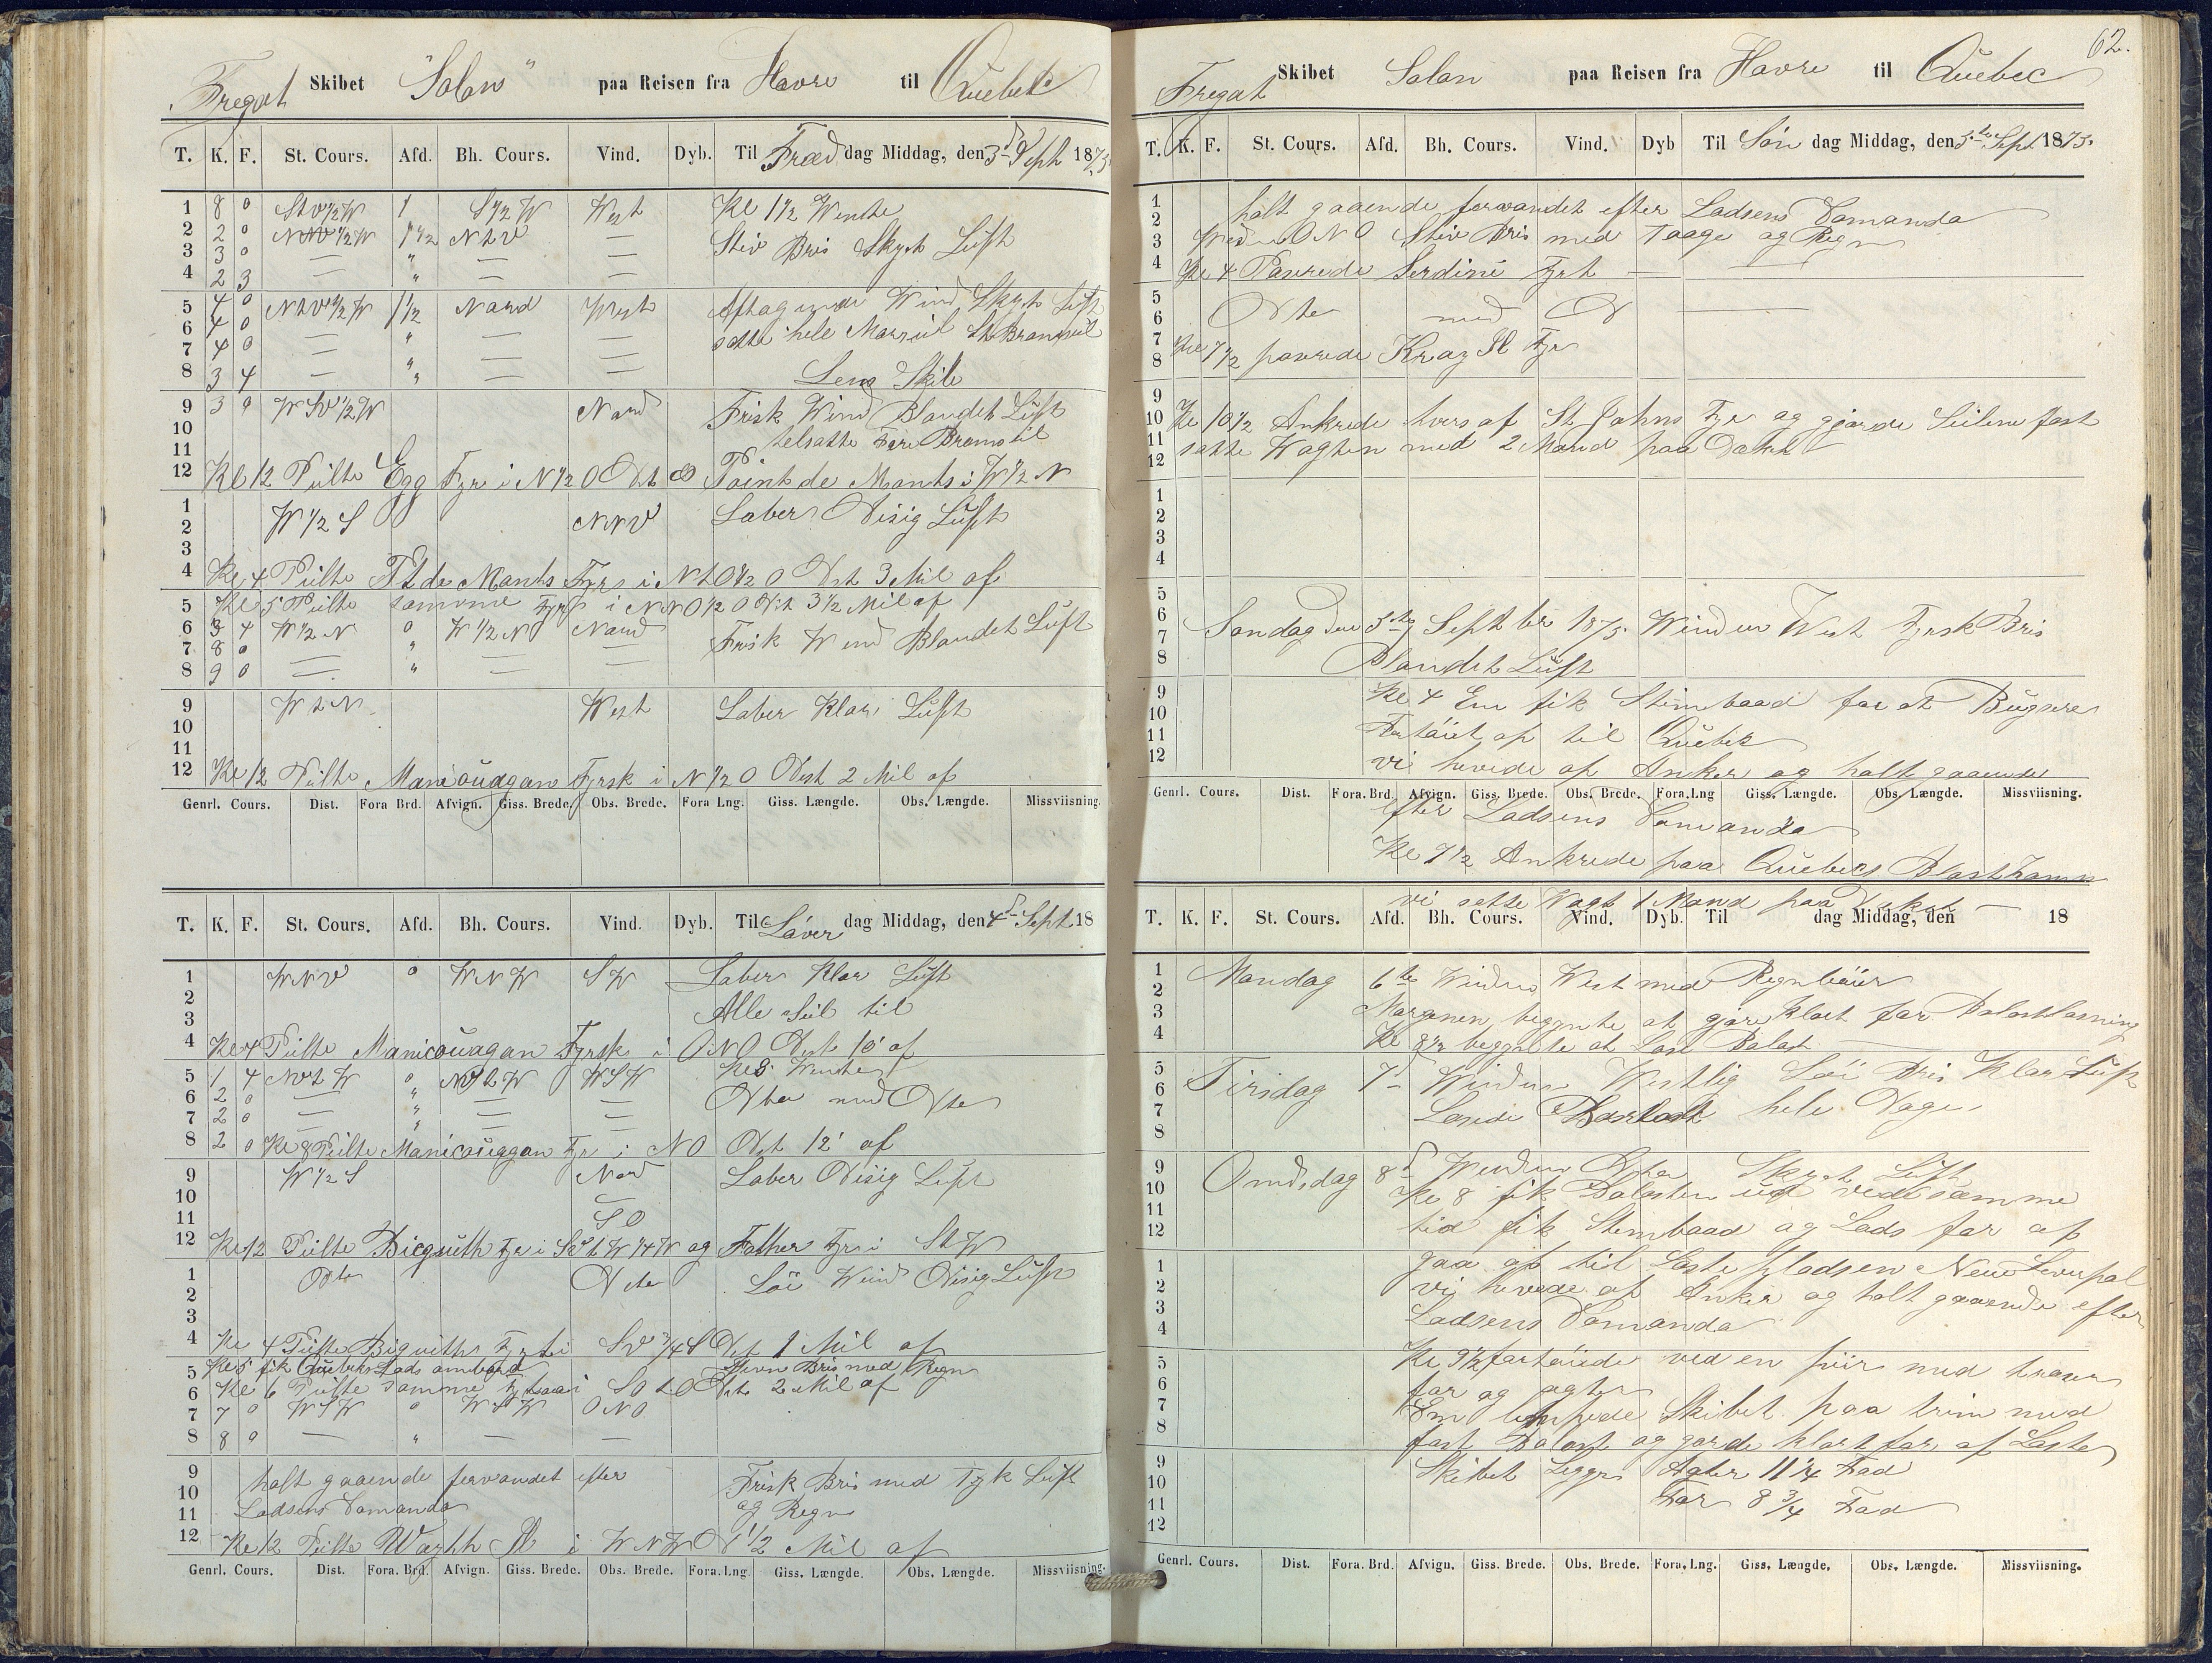 Fregat Skibet "Solon" paa Reisen fra Havre til Quebek
T. K. F. St. Cours. Afd. Bh. Cours. Vind. Dyb. Til Fræd dag Middag, den 3d Sept 1875
1 8 0 1 S 1/2 W West Kl 1 1/2 Wente
2 2 0 1 1/2 N t V —
3 3 0 — " — — Stiv Bris Skyet Luft
4 2 3 — " — —
5 4 0 N t V 1/2 W 1 1/2 Nord West Aftagende Wind Skyet Luft
6 4 0 — " — — satte hele Mersseil
7 4 0 — " — —
8 3 4 — " — — Lens Skib
9 3 0 W S V 1/2 W Nord Frisk Wind Blandet Luft
10 telsatte Fore Bramseil
11
12 Kl 12 Peilte Egg Fyr i N 1/2 O Dst 8 Point de Monts i W 1/2 N
1 W 1/2 S NNV Laber Disig Luft
2
3
4 Kl 4 Peilte Pt de Monts Fyr i N t O 1/2 O Dst 3 Mil af
5 Kl 5 Peilte samme Fyr i N N O 1/2 O Dst 3 1/2 Mil af
6 3 4 W 1/2 N 0 W 1/2 N Nord Frisk Wind Blandet Luft
7 8 0 — " — —
8 9 0 — " — —
9 W t N West Laber Klar Luft
10
11
12 Kl 12 Peilte Manicouagan Fyrsk i N 1/2 O Dist 2 Mil af
Genrl. Cours. Dist. Fora Brd. Afvign. Giss. Brede. Obs. Brede. Fora Lng. Giss. Længde. Obs. Længde. Missviisning.
T. K. F. St. Cours. Afd. Bh. Cours. Vind. Dyb. Til Löver dag Middag, den 4d Sept 18
1 WNV 0 WNW SW Laber Klar Luft
2 Alle Seil til
3
4 Kl 4 Peilte Manicouagan Fyrsk i ONO Dist 10' af
5 1 4 NV t W 0 WSW Wente
6 2 0 — " — — Dtto med Dto
7 2 0 — " — —
8 2 0 Kl 8 Peilte Manicouagan Fyr i NO Dst 12' af
9 W 1/2 S Nord Laber Disig Luft
10 —
11 SO
12 Kl 12 Peilte Bicquith Fyr i og Father Fyr i St W
1 Dto Dto Löi Wind Disig Luft
2
3
4 Kl 4 Peilte Biquith Fyr i SV 3/4 S Dst 1 Mil af
5 Kl 5 fik Quebeks Lods ombord Bris med Regn
6 Kl 6 Peilte samme Fyr i SO t O Dst 2 Mil af
7 7 0 WSW 0 WSW ONO
8 8 0 — " — —
9 holt gaaende farvandet efter Frisk Bris med Tyk Luft
10 og Regn
11 Lodsens Komando
12 Kl 12 Peilte i WNW D 1 1/2 Mil af
Genrl. Cours. Dist. Fora. Brd. Afvign. Giss. Brede. Obs. Brede. Fora. Lng. Giss. Længde. Obs. Længde. Missviisning.
62.
Fregat Skibet Solon paa Reisen fra Havre til Quebec
T. K. F. St. Cours. Afd. Bh. Cours. Vind. Dyb Til Søn dag Middag, den 5te Sept 1875.
1 holt gaaende farvandet efter Lodsens Komando
2
3 ONO Stiv Bris med Taage og Regn
4 Kl 4 Paserede Fyr
5
6 Dto med D
7
8 Kl 7 1/2 paserede Fyr
9
10 Kl 10 1/2 Ankrede tvers af St Johns Fyr og gjorde Seilene fast
11 satte Wagten med 2 Mand paa Dækket
12
1
2
3
4
5
6 Søndag den 5te Septbr 1875. Winden West Frisk Bris
7
8 Blandet Luft
9 Kl 4 Em fik Stimbaad for at Bugsere
10
11 Fartöiet op til Quebek
12 vi hevede op Anker og holt gaaende
Genrl. Cours. Dist. Fora. Brd. Afvign. Giss. Brede. Obs. Brede. Fora. Lng Giss. Længde. Obs. Længde. Missviisning.
efter Lodsens Komando
Kl 7 1/2 Ankrede paa Quebeks
vi satte Wagt 1 Mand paa Dækket
T. K. F. St. Cours. Afd. Bh. Cours. Vind. Dyb. Til dag Middag, den 18
1 Mandag 6te Winden West med Regnböier
2
3 Morgenen begynte at gjöre klart for Balastlosning
4 Kl 8 1/2 begynte at Lose Balast
5 Tirsdag 7d Winden Westlig Löi Bris Klar Luft
6
7 Losede Barlast hele Dagen
8
9 Onsdag 8d Winden Dto Skyet Luft
10 Kl 8 fik Balasten ud ved samme
11
12 tid fik Stembaad og Lods for at
1 gaa op til Lastepladsen New Leverpol
2 vi hevede op Anker og holt gaaende efter
3
4 Lodsens Komando
5 Kl 9 1/2 fortöiede ved en piir med traaser
6 for og agter
7 Em Skibet paa trim med
8 fast Balast og gjorde klart for at Laste
9 Skibet Ligger Agter 11 1/4 Fod
10
11 For 8 3/4 Fod
12
Genrl. Cours. Dist. Fora. Brd. Afvign. Giss. Brede. Obs. Brede. Fora. Lng. Giss. Længde. Obs. Længde. Missviisning.